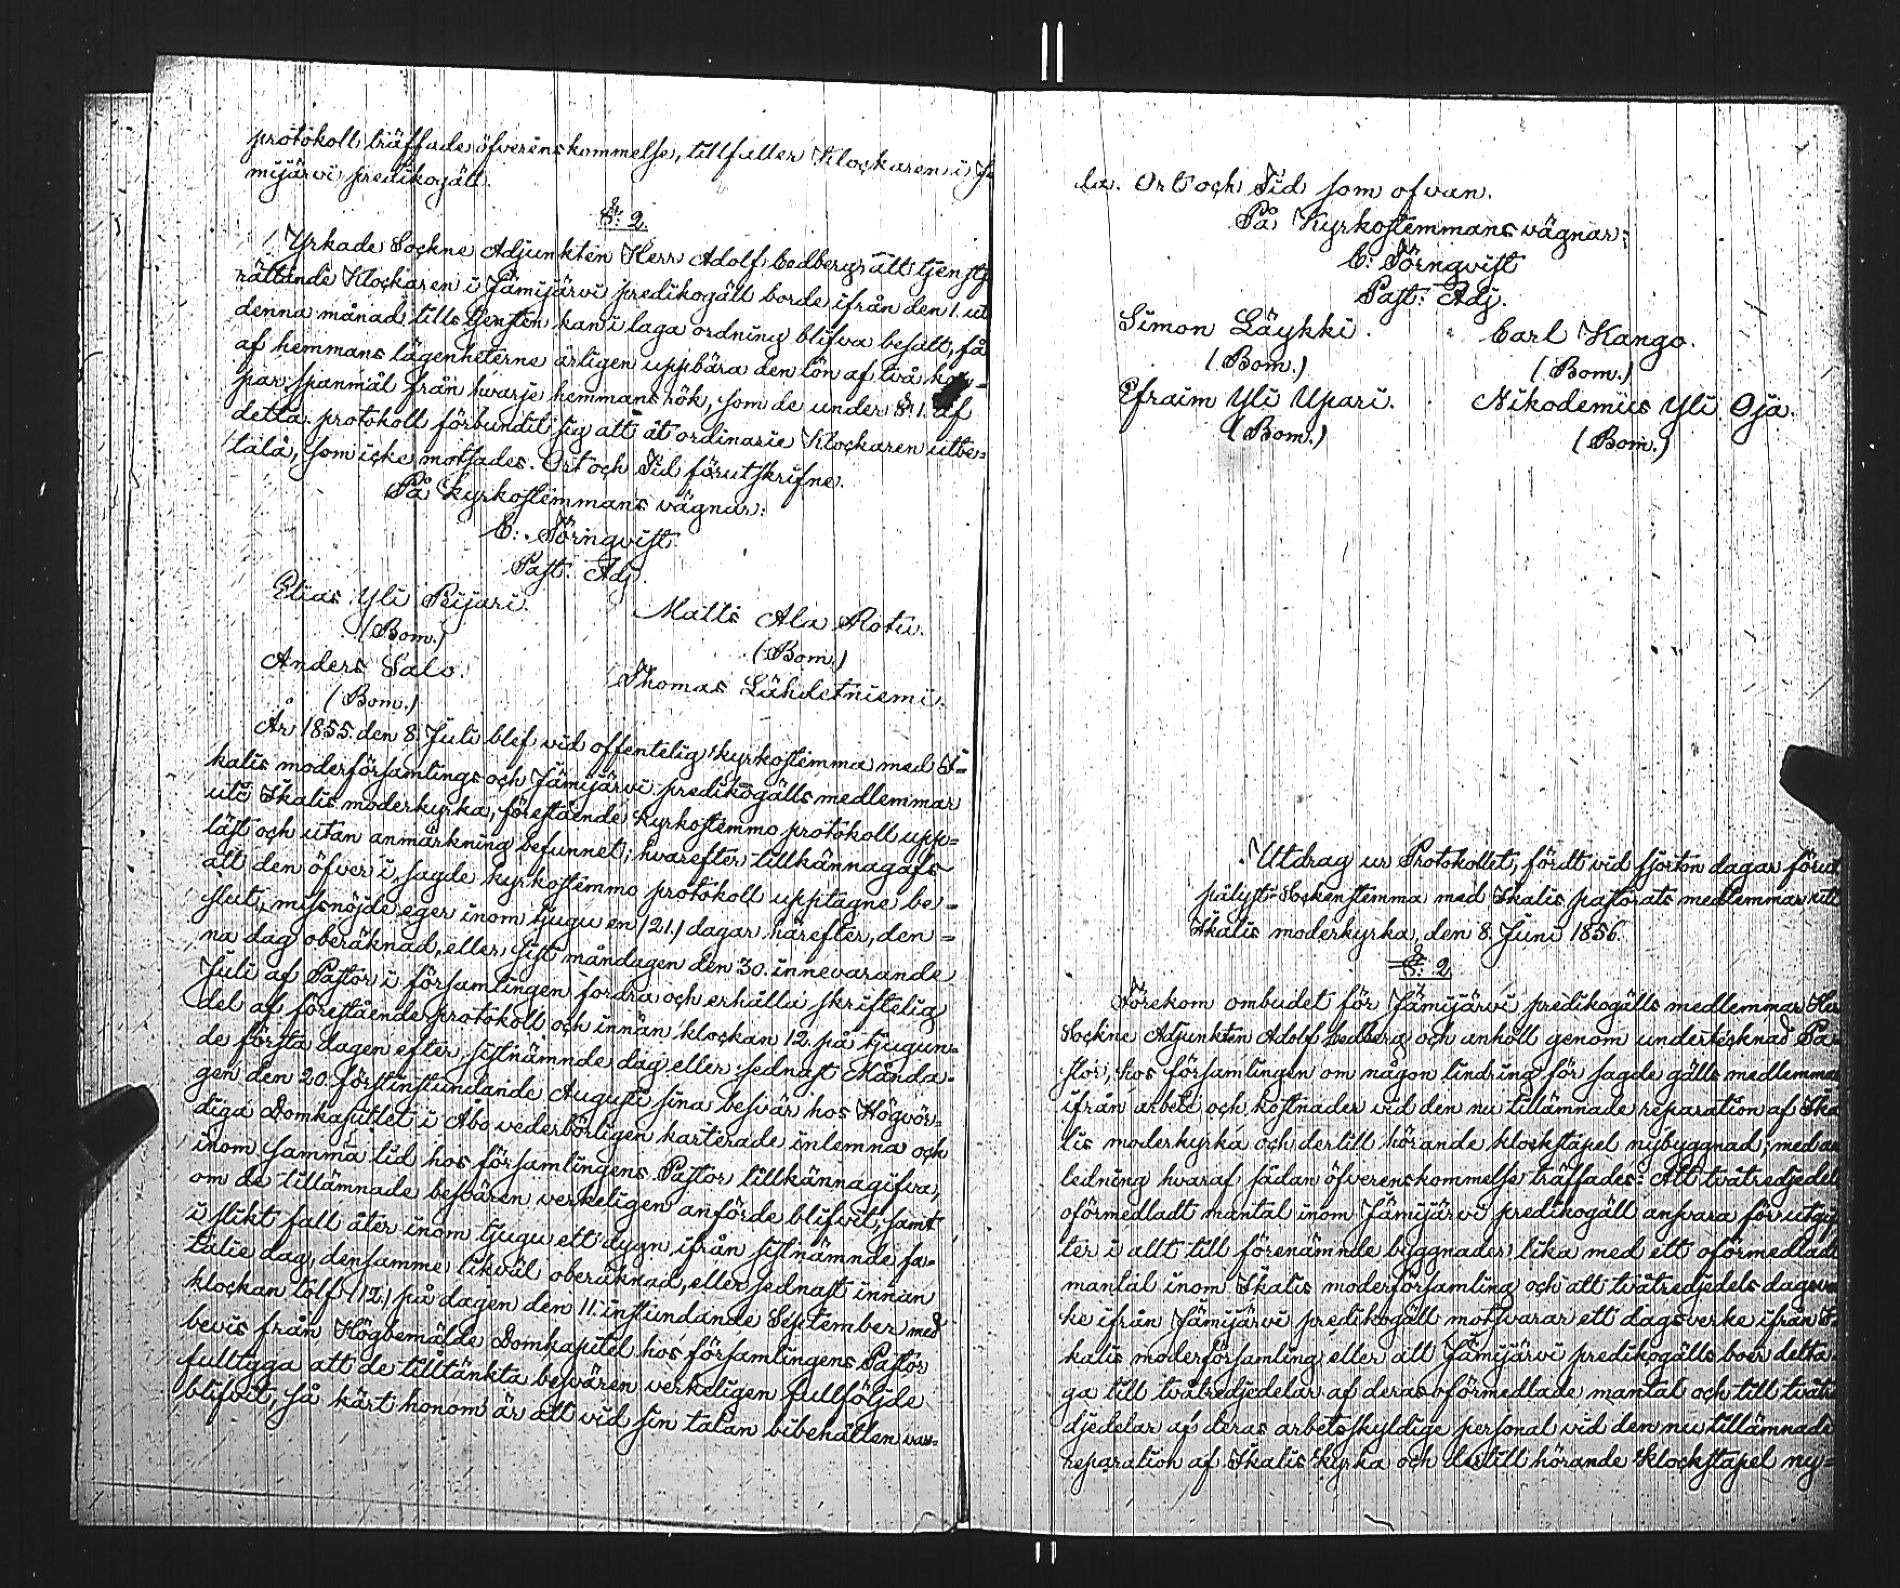 protokoll träffade öfverenskommelse, tillfaller Klockaren i Jä
mijärvi predikogäll.
§: 2.
Yrkade Sockne Adjunkten Herr Adolf Cedberg, att tjenstf
rättande Klockaren i Jämijärvi predikogäll borde ifrån den 1. ut
denna månad, tills tjensten kan i laga ordning blifva besatt, få
af hemmans lägenheterne årligen uppbära den lön af två kap-
par spanmål från hvarje hemmans rök, som de under §: 1. af
detta protokoll förbundit sig att åt ordinarie Klockaren utbe-
tala, som icke motsades. Ort och Tid förutskrifne.
På Kyrkostemmans vägnar:
C: Törnqvist
Past: Adj.
Elias Yli Rijari. Matts Ala Rotu.
(Bom.) (Bom.)
Anders Salo. Thomas Lähdetniemi.
(Bom.)
År 1855. den 8. Juli blef vid offentelig kyrkostemma med I-
kalis moderförsamlings och Jämijärvi predikogälls medlemmar
uti Ikalis moderkyrka, förestående kyrkostemmo protokoll upp-
läst och utan anmärkning befunnet; hvarefter tillkännagafs
att den öfver i sagde kyrkostemmo protokoll upptagne be-
slut, missnöjde eger inom tjugu en (21.) dagar härefter, den-
na dag oberäknad, eller sist måndagen den 30. innevarande
Juli af Pastor i församlingen fordra och erhålla skriftelig
del af förestående protokoll och innan klockan 12. på tjugun-
de första dagen efter sistnämnde dag eller sednast Månda-
gen den 20. förstinstundande Augusti sina besvär hos Högvör-
diga Domkapitlet i Åbo vederbörligen karterade inlemna och
inom samma tid hos församlingens Pastor tillkännagifva,
om de tillämnade besvären verkeligen anförde blifvit, samt
i slikt fall åter inom tjugu ett dygn ifrån sistnämnde fa-
talie dag, densamme likväl oberäknad, eller sednast innan
klockan tolf (12.) på dagen den 11. instundande September med
bevis från Högbemälde Domkapitel hos församlingens Pastor
fulltyga att de tilltänkta besvären verkeligen fullföljde
blifvit, så kärt honom är att vid sin talan bibehållen var-
la. Ort och Tid som ofvan.
På Kyrkostemmans vägnar:
C: Törnqvist
Past: Adj.
Simon Läykki. Carl Kango.
(Bom.) (Bom.)
Efraim Yli Upari. Nikodemus Yli Oja.
(Bom.) (Bom.)
Utdrag ur Protokollet, fördt vid fjorton dagar förut
pålyst Sockenstemma med Ikalis pastorats medlemmar uti
Ikalis moderkyrka, den 8. Juni 1856.
§: 2
Förekom ombudet för Jämijärvi predikogälls medlemmar Her
Sockne Adjunkten Adolf Cedberg och anhöll genom undertecknad Pa
stor, hos församlingen om någon lindring för sagde gälls medlemmar
ifrån arbete och kostnader vid den nu tillämnade reparation af Ika
lis moderkyrka och dertill hörande klockstapel nybyggnad; med an
ledning hvaraf sådan öfverenskommelse träffades: Att tvåtredjedel
oförmedladt mantal inom Jämijärvi predikogäll ansvara för utgif
ter i allt till förenämnde byggnader lika med ett oförmedladt
mantal inom Ikalis moderförsamling och att tvåtredjedels dagsver
ke ifrån Jämijärvi predikogäll motsvarar ett dagsverke ifrån I
kalis moderförsamling eller att Jämijärvi predikogälls boer delta
ga till tvåtredjedelar af deras oförmedlade mantal och till tvåtre
djedelar af deras arbetsskyldige personal vid den nu tillämnade
reparation af Ikalis Kyrka och dertill hörande Klockstapel ny-